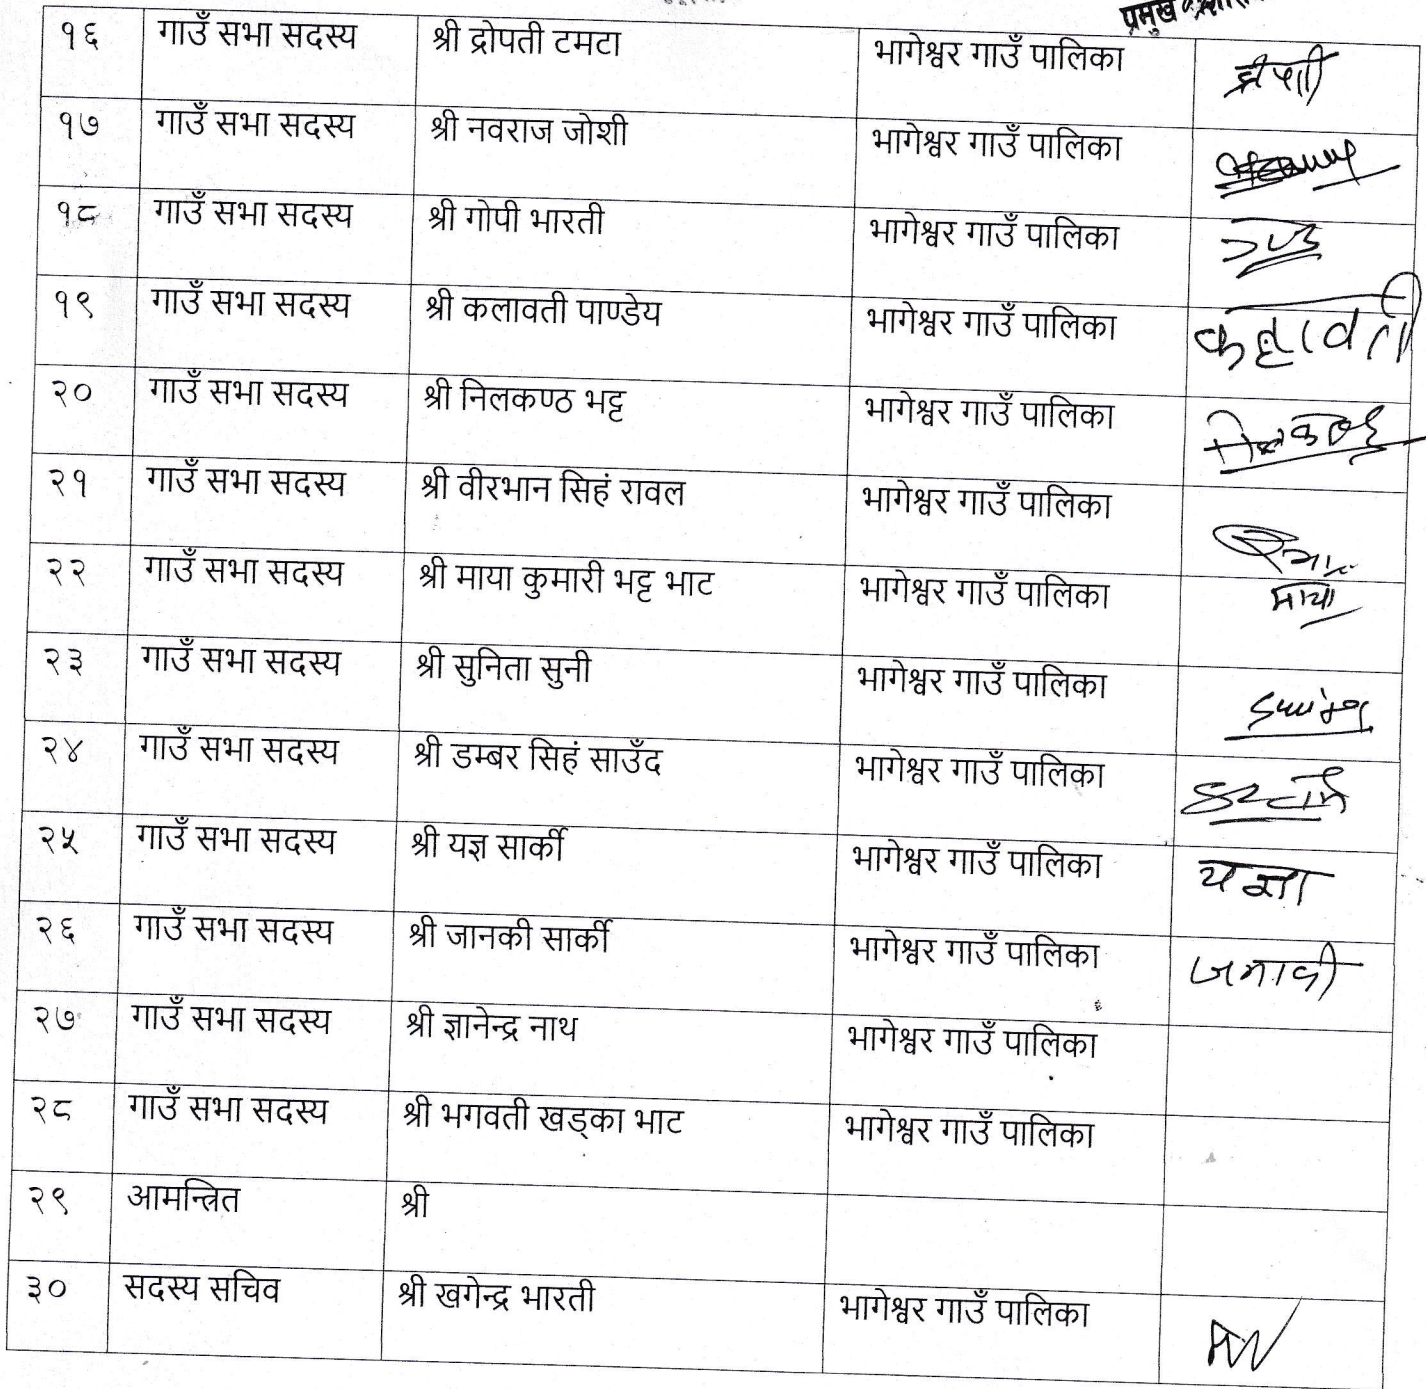 प्रमुख
१६ गाउँ सभा सदस्य श्री द्रोपती टमटा भागेश्वर गाउँ पालिका
१७ गाउँ सभा सदस्य श्री नवराज जोशी भागेश्वर गाउँ पालिका
१८ गाउँ सभा सदस्य श्री गोपी भारती भागेश्वर गाउँ पालिका
१९ गाउँ सभा सदस्य श्री कलावती पाण्डेय भागेश्वर गाउँ पालिका कलावती
२० गाउँ सभा सदस्य श्री निलकण्ठ भट्ट भागेश्वर गाउँ पालिका
२१ गाउँ सभा सदस्य श्री वीरभान सिहं रावल भागेश्वर गाउँ पालिका
२२ गाउँ सभा सदस्य श्री माया कुमारी भट्ट भाट भागेश्वर गाउँ पालिका माया
२३ गाउँ सभा सदस्य श्री सुनिता सुनी भागेश्वर गाउँ पालिका
२४ गाउँ सभा सदस्य श्री डम्बर सिहं साउँद भागेश्वर गाउँ पालिका
२५ गाउँ सभा सदस्य श्री यज्ञ सार्की भागेश्वर गाउँ पालिका
२६ गाउँ सभा सदस्य श्री जानकी सार्की भागेश्वर गाउँ पालिका
२७ गाउँ सभा सदस्य श्री ज्ञानेन्द्र नाथ भागेश्वर गाउँ पालिका
२८ गाउँ सभा सदस्य श्री भगवती खड्का भाट भागेश्वर गाउँ पालिका
२९ आमन्त्रित श्री
३० सदस्य सचिव श्री खगेन्द्र भारती भागेश्वर गाउँ पालिका